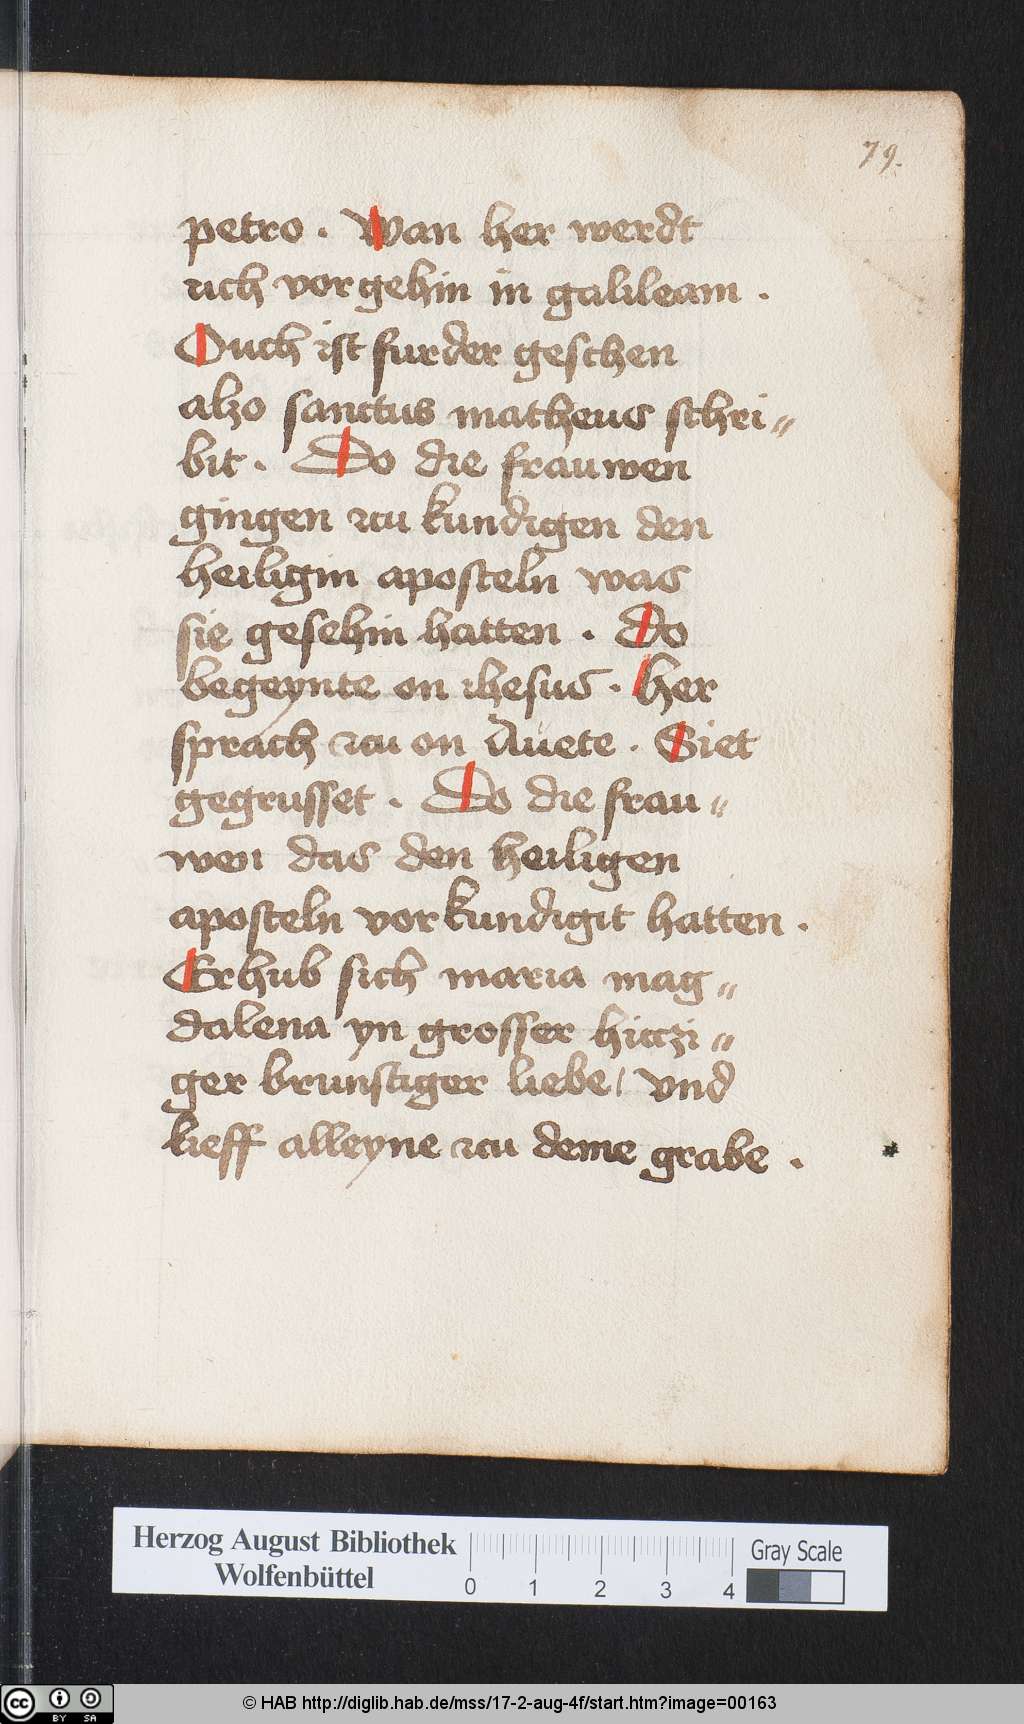 79.
petro . Wan her werdt
uch vorgehin in galileam .
Ouch ist furder geschen
alzo sanctus matheus schri〃
bit . Do die frauwen
gingen zcu kundigen den
heiligin aposteln was
sie gesehin hatten . Do
begeynte on ihesus . her
sprach zcu on Auete . Siet
gegrusset . Do die frau〃
wen das den heiligen
aposteln vorkundigit hatten .
Erhub sich maria mag〃
dalena yn grosser hiczi〃
ger brunstiger liebe / vnd
lieff alleyne zcu deme grabe .
Herzog August Bibliothek
Wolfenbüttel
0 1 2 3 4
Gray Scale
cc BY SA
© HAB http://diglib.hab.de/mss/17-2-aug-4f/start.htm?image=00163